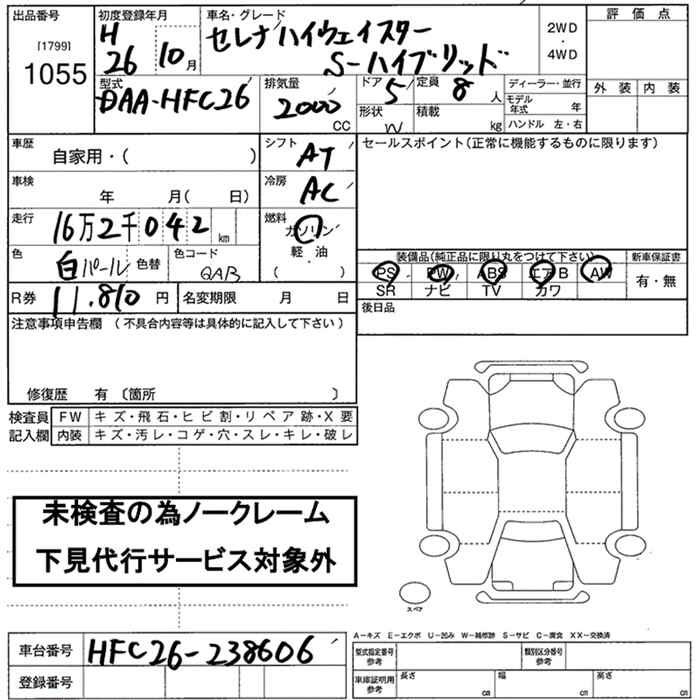 出品番号 初度登録年月 車名・グレード 評価点
[1799] H セレナハイウェイスター 2WD
1055 26 10月 S-ハイブリッド ・4WD
型式 排気量 ドア 定員 ディーラー・並行 外装 内装
DAA-HFC26 2000 CC 5 8人 モデル年式 年
形状 W 積載 kg ハンドル 左・右
車歴 シフト セールスポイント(正常に機能するものに限ります)
自家用・( ) AT
車検 冷房
年 月( 日) AC
走行 燃料
16万2千042km ガソリン
軽・油
( )
色 色替 色コード 装備品(純正品に限り丸をつけて下さい) 新車保証書
白パール QAB PS PW ABS エアB AW 有・無
SR ナビ TV カワ
R券 11.810円 名変期限 月 日 後日品
注意事項申告欄(不具合内容等は具体的に記入して下さい)
修復歴 有〔箇所 〕
検査員 FW キズ・飛石・ヒビ割・リペア跡・X要
記入欄 内装 キズ・汚レ・コゲ・穴・スレ・キレ・破レ
未検査の為ノークレーム
下見代行サービス対象外
スペア
A-キズ E-エクボ U-凹み W-補修跡 S-サビ C-腐食 XX-交換済
車台番号 HFC26-238606 型式指定番号 参考 類別区分番号 参考
登録番号 車庫証明用 参考 長さ cm 幅 cm 高さ cm